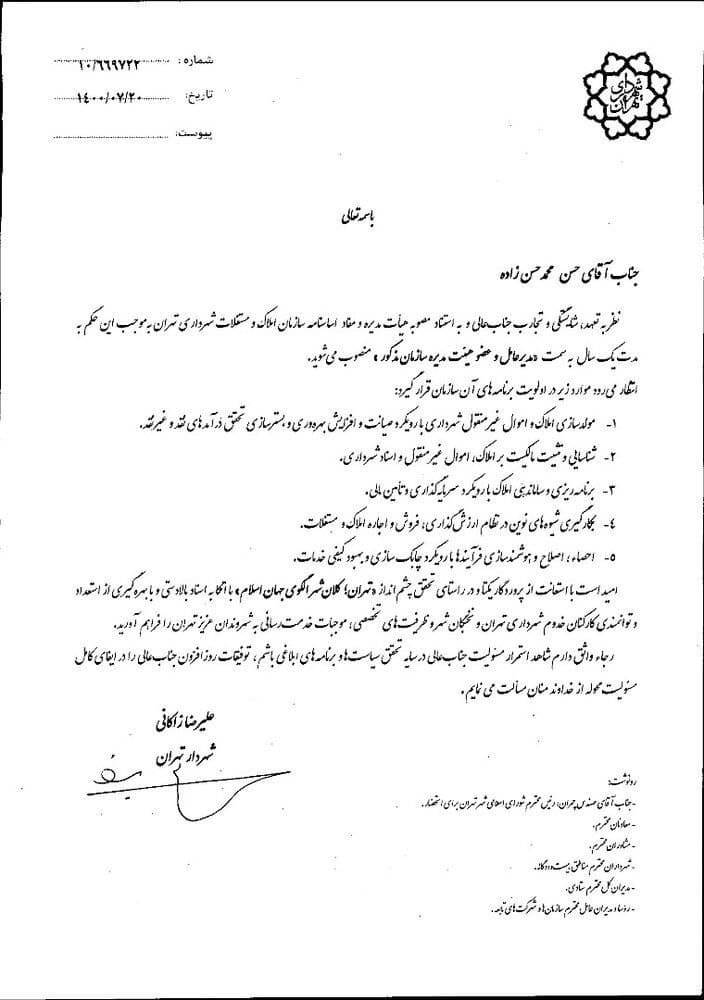 شماره: ۱۰/۶۶۹۷۲۲
تاریخ: ۱۴۰۰/۰۷/۲۰
پیوست:
شهرداری تهران
باسمه تعالی
جناب آقای حسن محمدحسن زاده
نظر به تعهد، شایستگی و تجارب جناب‌عالی و به استناد مصوبه هیأت مدیره و مفاد اساسنامه سازمان املاک و مستغلات شهرداری تهران به‌موجب این حکم به
مدت یک سال به سمت «مدیرعامل و عضو هیئت مدیره سازمان مذکور» منصوب می‌شوید.
انتظار می‌رود موارد زیر در اولویت برنامه‌های آن سازمان قرار گیرد:
۱- مولدسازی املاک و اموال غیرمنقول شهرداری با رویکرد صیانت و افزایش بهره‌وری و بسترسازی تحقق درآمدهای نقد و غیرنقد.
۲- شناسایی و تثبیت مالکیت بر املاک، اموال غیرمنقول و اسناد شهرداری.
۳- برنامه‌ریزی و ساماندهی املاک با رویکرد سرمایه‌گذاری و تأمین مالی.
۴- بکارگیری شیوه‌های نوین در نظام ارزش‌گذاری، فروش و اجاره املاک و مستغلات.
۵- احصاء، اصلاح و هوشمندسازی فرآیندها با رویکرد چابک‌سازی و بهبود کیفی خدمات.
امید است با استعانت از پروردگار یکتا و در راستای تحقق چشم‌انداز «تهران؛ کلان‌شهر الگوی جهان اسلام» با اتکا به اسناد بالادستی و با بهره‌گیری از استعداد
و توانمندی کارکنان خدوم شهرداری تهران و نخبگان شهر و ظرفیت‌های تخصصی، موجبات خدمت‌رسانی به شهروندان عزیز تهران را فراهم آورید.
رجاء واثق دارم شاهد استمرار مسئولیت جناب‌عالی در سایه تحقق سیاست‌ها و برنامه‌های ابلاغی باشم، توفیقات روزافزون جناب‌عالی را در ایفای کامل
مسئولیت محوله از خداوند منان مسألت می نمایم.
علیرضا زاکانی
شهردار تهران
رونوشت:
- جناب آقای مهندس چمران، رئیس محترم شورای اسلامی شهر تهران برای استحضار.
- معاونان محترم.
- مشاوران محترم.
- شهرداران محترم مناطق بیست‌و‌دوگانه.
- مدیران کل محترم ستادی.
- رؤسا و مدیران عامل محترم سازمان‌ها و شرکت‌های تابعه.